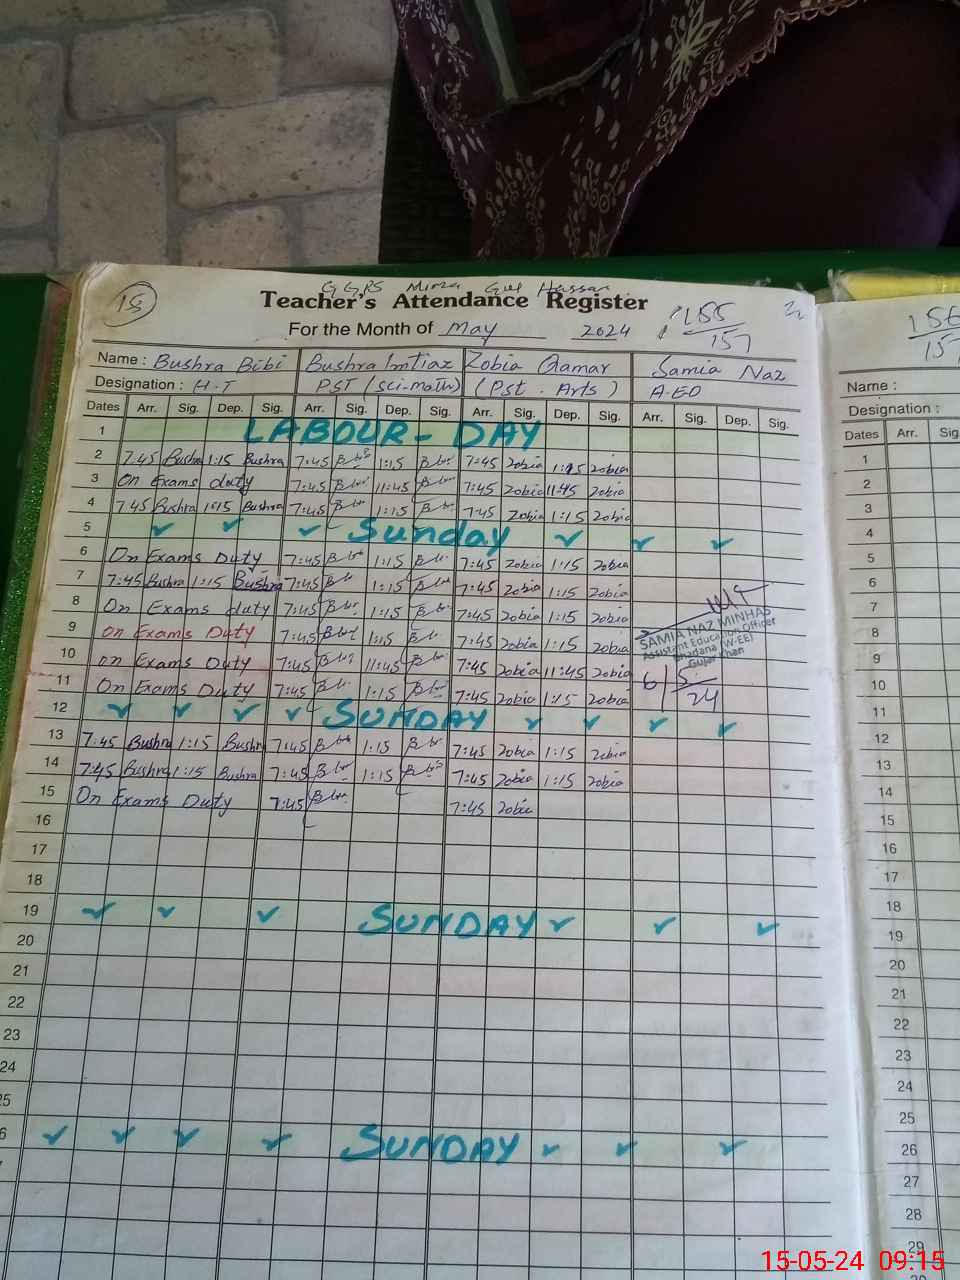 15
G GPS Mirza Gul Hassan
Teacher's Attendance Register
155
157
For the Month of May 2024
Name : Bushra Bibi Bushra Imtiaz Zobia Qamar Samia Naz
Designation : H.T PST (sci-math) (Pst . Arts ) A.EO
Dates Arr. Sig. Dep. Sig. Arr. Sig. Dep. Sig. Arr. Sig. Dep. Sig. Arr. Sig. Dep. Sig.
1 LABOUR - DAY
2 7.45 Bushra 1:15 Bushra 7:45 1:15 7:45 Zobia 1:15 Zobia
3 On Exams duty 7:45 11:45 7:45 Zobia 11:45 Zobia
4 7.45 Bushra 1:15 Bushra 7:45 1:15 7:45 Zobia 1:15 Zobia
5 Sunday
6 On Exams Duty 7:45 1:15 7:45 Zobia 1:15 Zobia
7 7:45 Bushra 1:15 Bushra 7:45 1:15 7:45 Zobia 1:15 Zobia
8 On Exams duty 7:45 1:15 7:45 Zobia 1:15 Zobia
9 on Exams Duty 7:45 1:15 7:45 Zobia 1:15 Zobia
10 on Exams Duty 7:45 11:45 7:45 Zobia 11:45 Zobia
11 On Exams Duty 7:45 1:15 7:45 Zobia 1:15 Zobia
SAMIA NAZ MINHAS
Assistant Education Officer
Bhadana (W-EE)
Gujar Khan
6/5/24
12 SUNDAY
13 7:45 Bushra 1:15 Bushra 7:45 1:15 7:45 Zobia 1:15 Zobia
14 7:45 Bushra 1:15 Bushra 7:45 1:15 7:45 Zobia 1:15 Zobia
15 On Exams Duty 7:45 7:45 Zobia
16
17
18
19 SUNDAY
20
21
22
23
24
25
6 SUNDAY
156
157
Name :
Designation :
Dates Arr. Sig
1
2
3
4
5
6
7
8
9
10
11
12
13
14
15
16
17
18
19
20
21
22
23
24
25
26
27
28
29
15-05-24 09:15